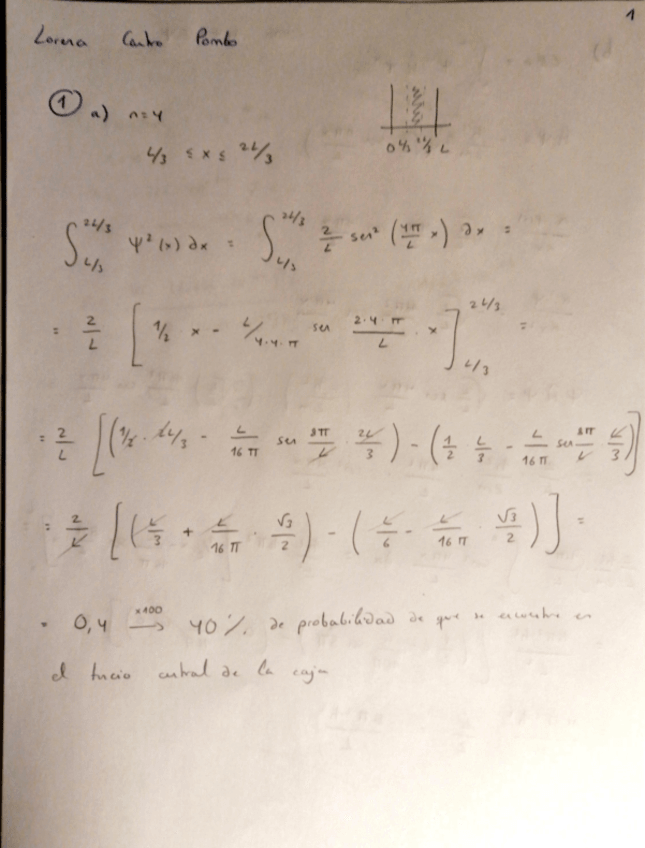 1
Lorena Castro Pombo
① a) n=4
L/3 ≤ x ≤ 2L/3
0 L/3 2L/3 L
∫_{L/3}^{2L/3} Ψ²(x) ∂x = ∫_{L/3}^{2L/3} 2/L sen² (4π/L x) ∂x =
= 2/L [ 1/2 x - L/4·4·π sen 2·4·π/L · x ]_{L/3}^{2L/3} =
= 2/L [ (1/2 · 2L/3 - L/16π sen 8π/L · 2L/3) - (1/2 L/3 - L/16π sen 8π/L L/3) ]
= 2/L [ (L/3 + L/16π · √3/2) - (L/6 - L/16π · √3/2) ] =
= 0,4 ×100→ 40 % de probabilidad de que se encuentre en
el tercio central de la caja